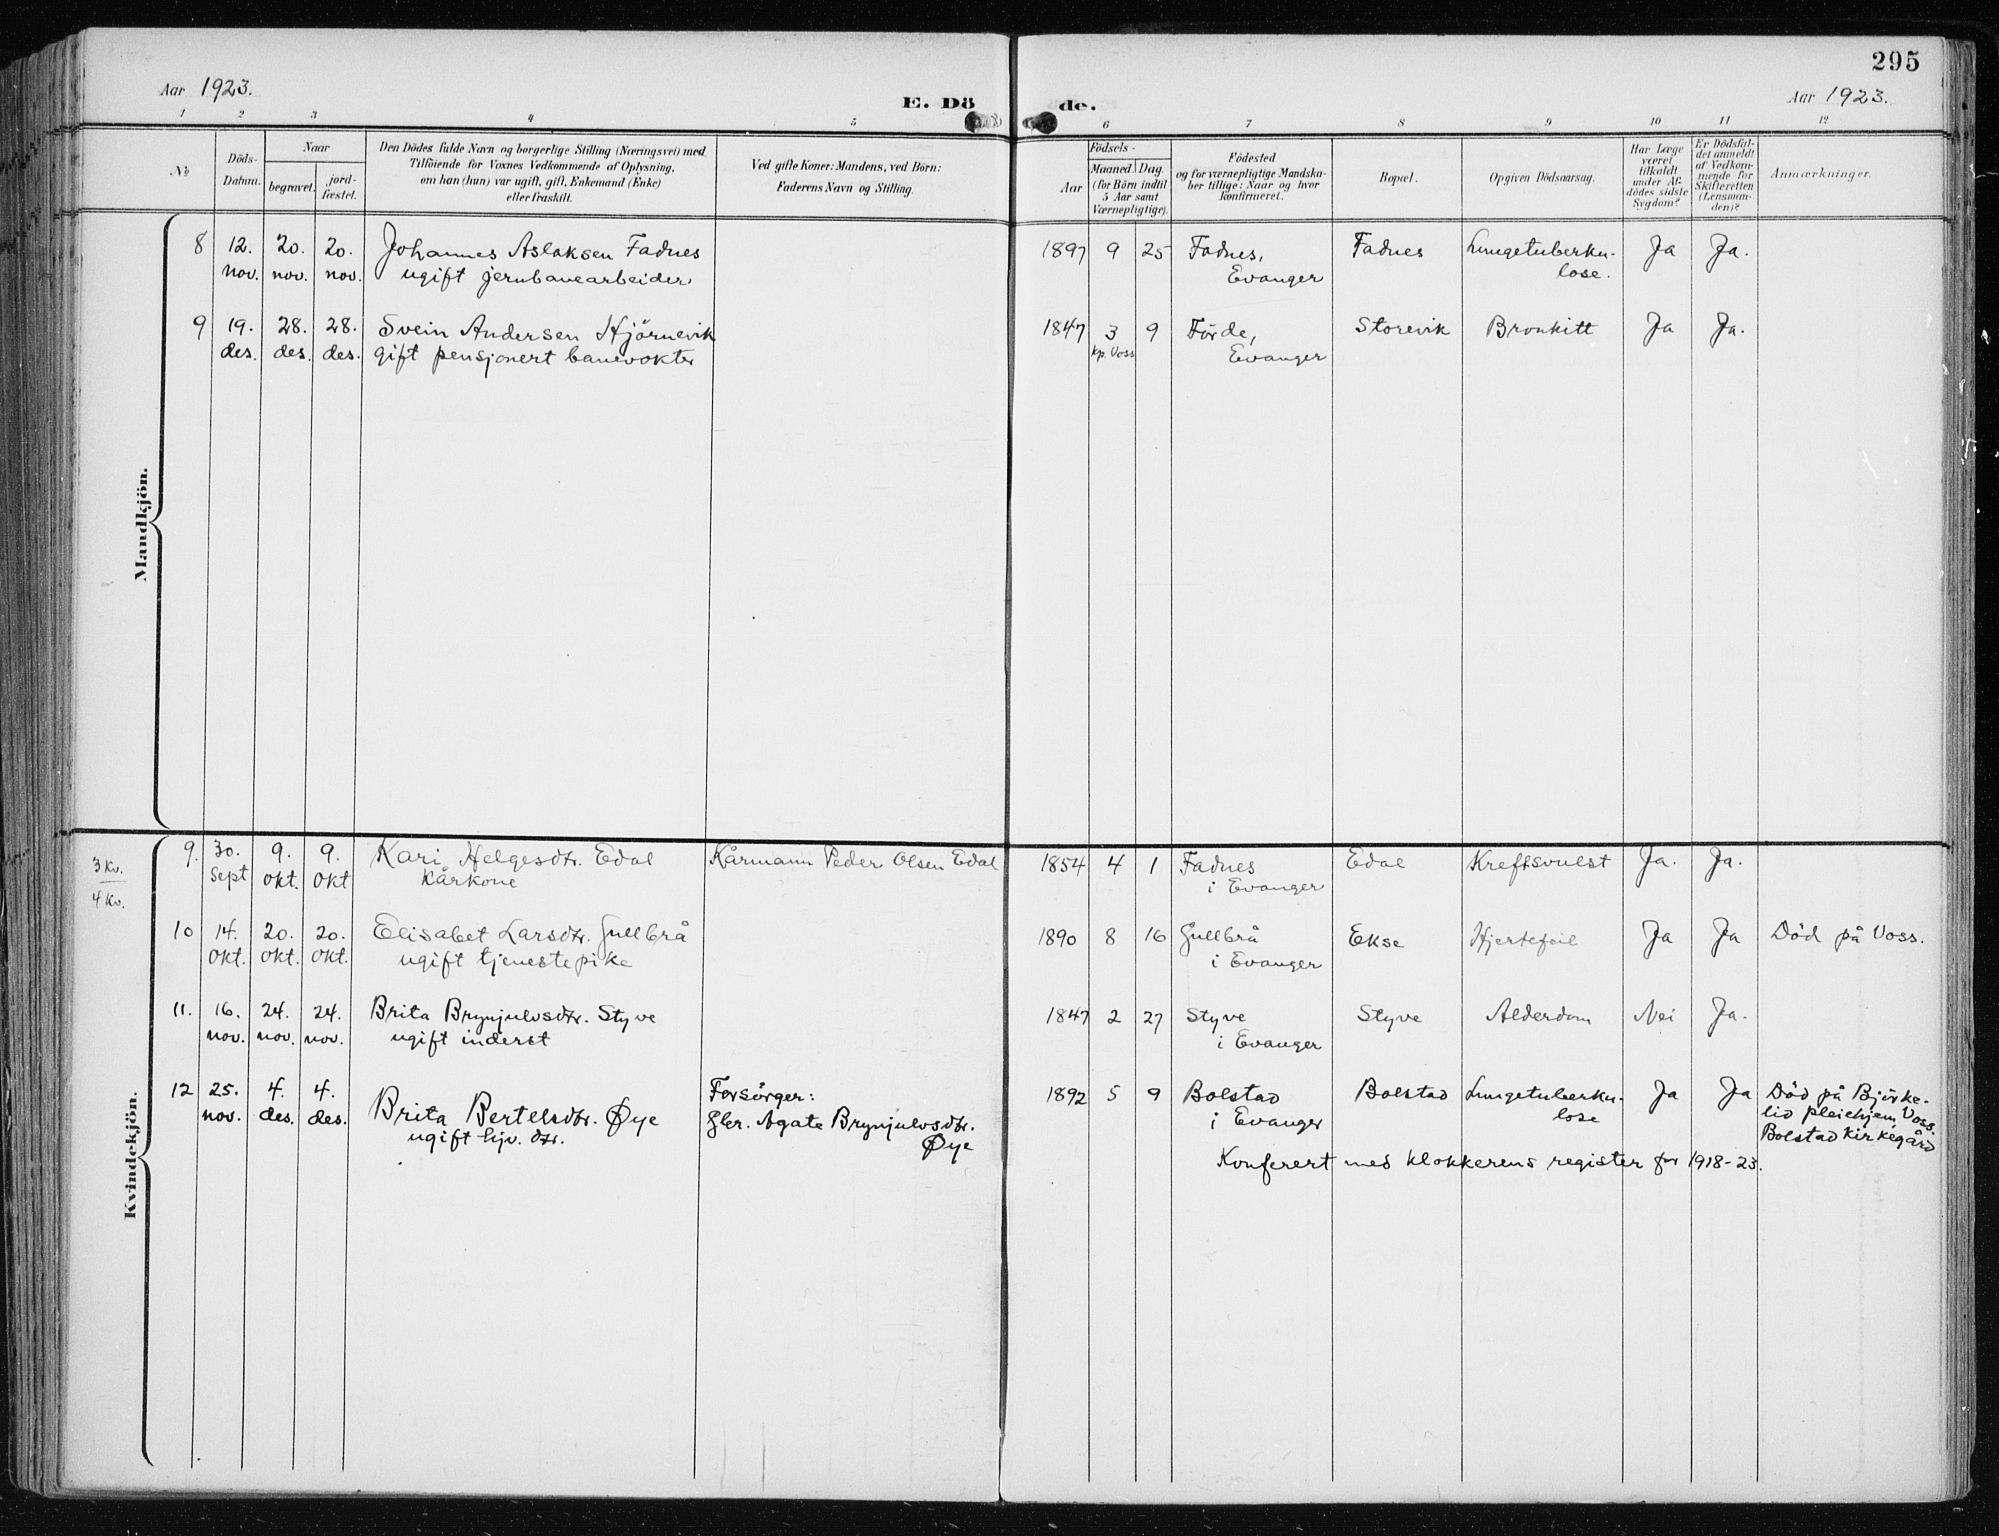 295
Aar 1923.
E. Dö de.
Aar 1923.
1 2 3 4 5 6 7 8 9 10 11 12
No
Döds-
Datum.
Naar
begravet.
jord-
fæstet.
Den Dödes fulde Navn og borgerlige Stilling (Næringsvei) med
Tilföiende for Voxnes Vedkommende af Oplysning,
om han (hun) var ugift, gift, Enkemand (Enke)
eller fraskilt.
Ved gifte Koner: Mandens, ved Börn:
Faderens Navn og Stilling.
Födsels-
Aar
Maaned. Dag.
(for Börn indtil
5 Aar samt
Værnepligtige).
Födested
og for værnepligtige Mandska-
ber tillige: Naar og hvor
konfirmeret.
Bopæl.
Opgiven Dödsaarsag.
Har Læge
været
tilkaldt
under Af-
dödes sidste
Sygdom?
Er Dödsfal-
det anmeldt
af Vedkom-
mende for
Skifteretten
(Lensman-
den)?
Anmærkninger.
Mandkjön.
8 12. 20. 20. Johannes Aslaksen Fadnes 1897 9 25 Fadnes, Fadnes Lungetuberku- Ja Ja.
nov. nov. nov. ugift jernbanearbeider Evanger lose.
9 19. 28. 28. Svein Andersen Hjörnevik 1847 3 9 Förde, Storevik Bronkitt Ja Ja.
des. des. des. gift pensjonert banevokter kp. Voss Evanger
Kvindekjön.
3 Kv.
4 Kv.
9. 30. 9. 9. Kari Helgesdtr. Edal Kårmann Peder Olsen Edal 1854 4 1 Fadnes Edal Kreftsvulst Ja. Ja.
sept okt. okt Kårkone i Evanger
10 14. 20. 20. Elisabet Larsdtr. Gullbrå 1890 8 16 Gullbrå Ekse Hjertefeil Ja Ja Död på Voss.
okt. okt. okt. ugift tjenestepike i Evanger
11. 16. 24. 24. Brita Brynjulvsdtr. Styve 1847 2 27 Styve Styve Alderdom Nei Ja.
nov. nov. nov. ugift inderst i Evanger
12 25. 4. 4. Brita Bertelsdtr. Øye Forsörger: 1892 5 9 Bolstad Bolstad Lungetuberku- Ja Ja Död på Björke-
nov. des. des. ugift hjv. dtr. Gbr. Agate Brynjulvsdtr. i Evanger lose lid pleiehjem, Voss.
Øye Bolstad kirkegård
Konferert med klokkerens register for 1918-23.